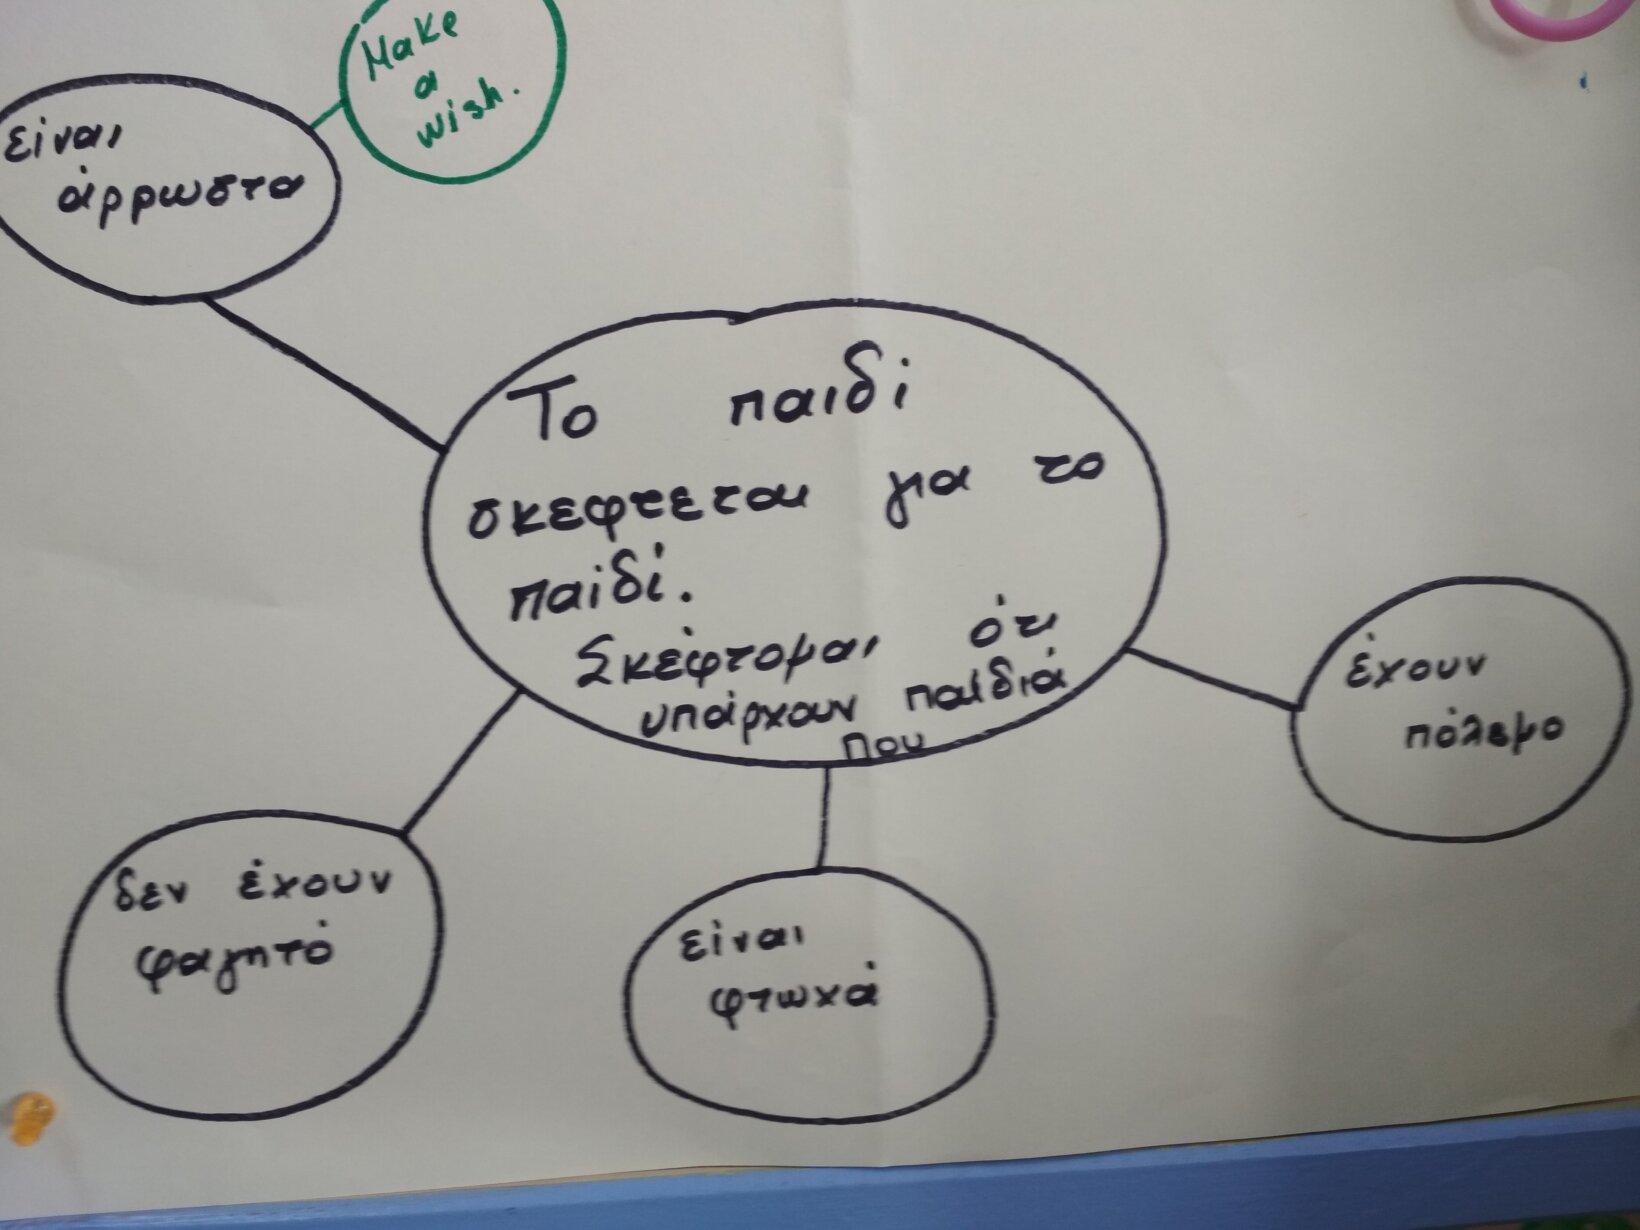 Make
a
wish.
είναι
άρρωστα
Το παιδί
σκεφτεται για το
παιδί.
Σκέφτομαι ότι
υπάρχουν παιδιά
που
έχουν
πόλεμο
δεν έχουν
φαγητό
είναι
φτωχά